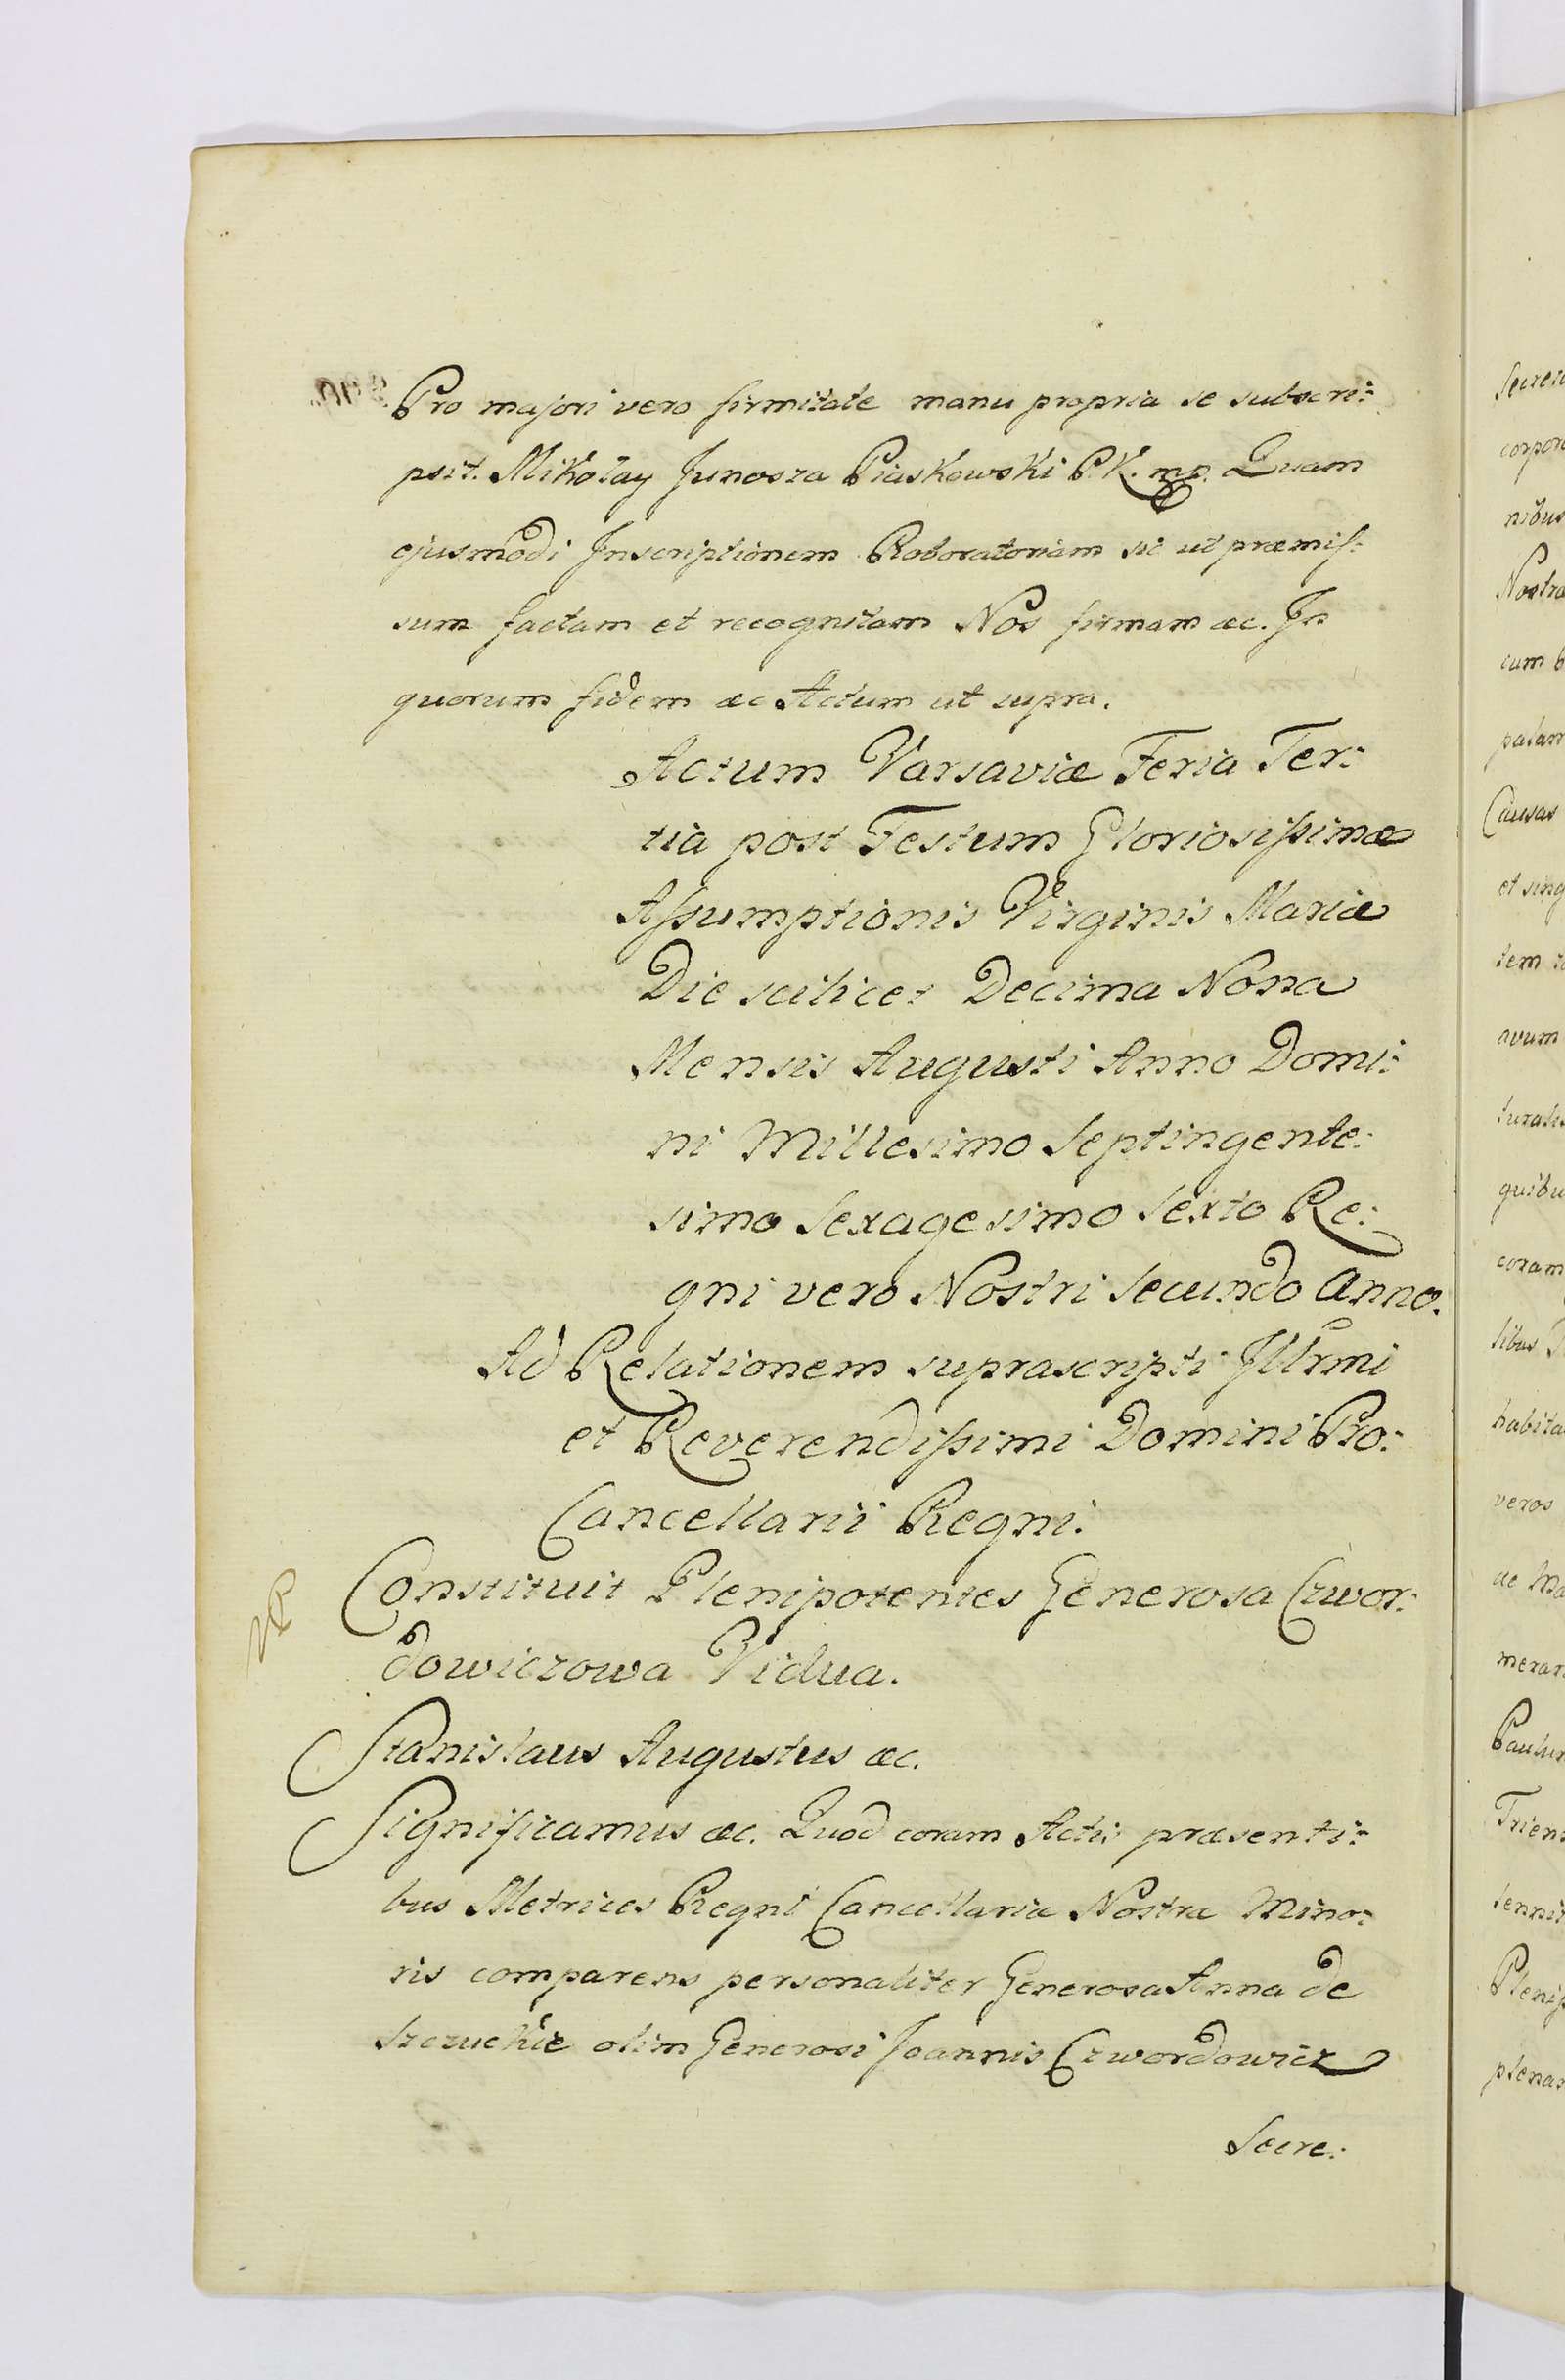 Pro majori vero firmitate manu propria se subscri:
psit. Mikołay Junosza Piaskowski P.K. mp. Quam
ejusmodi Inscriptionem Roboratoriam sic ut præmis:
sum factam et recognitam Nos firmam &c. In
quorum fidem &c Actum ut supra.
Actum Varsaviæ Feria Ter:
tia post Festum Gloriosissimæ
Assumptionis Virginis Mariæ
Die scilicet Decima Nona
Mensis Augusti Anno Domi:
ni Millesimo Septingente:
simo Sexagesimo Sexto Re:
gni vero Nostri Secundo Anno.
Ad Relationem suprascripti Illrmi
et Reverendissimi Domini Pro:
Cancellarii Regni.
Constituit Plenipotentes Generosa Czwor:
dowiczowa Vidua.
Stanislaus Augustus &c.
Significamus &c. Quod coram Actis præsenti:
bus Metrices Regni Cancellariæ Nostræ Mino:
ris comparens personaliter Generosa Anna de
olim Generosi Joannis Czwordowicz
Secre:
corpor
nibus
Nostra
cum
palam
Causas
et sing
tem
avum
quibu
coram
habita
veros
ac
Trien
Plenip
plenar